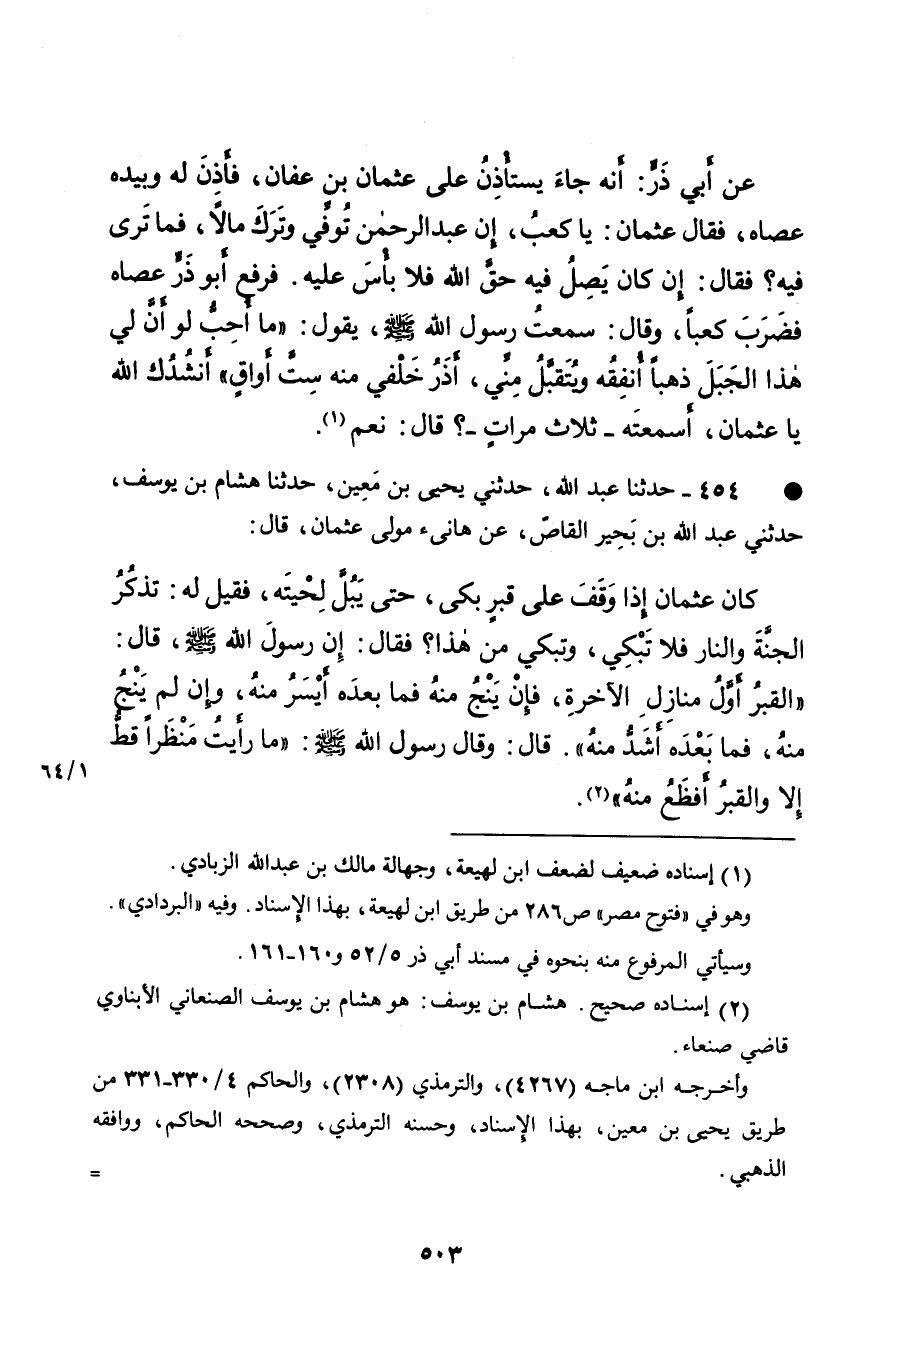 عن أَبي ذَرٍّ: أَنه جاءَ يستأْذِنُ على عثمان بنِ عفان، فأَذِنَ له وبيده
عصاه، فقال عثمان: يا كعبُ، إِن عبدالرحمٰن تُوفِّي وتَرَكَ مالاً، فما تَرى
فيه؟ فقال: إِن كان يَصِلُ فيه حقَّ الله فلا بأْسَ عليه. فرفع أَبو ذَرٍّ عصاه
فضَرَبَ كعباً، وقال: سمعتُ رسول الله ﷺ، يقول: «ما أُحِبُّ لو أَنَّ لي
هٰذا الجَبَلَ ذهباً أُنفِقُه ويُتَقبَّلُ مِنِّي، أَذَرُ خَلْفي منه سِتَّ أَواقٍ» أَنشُدُك الله
يا عثمان، أَسمعتَه ـ ثلاث مراتٍ ـ؟ قال: نعم(١).
● ٤٥٤ ـ حدثنا عبد الله، حدثني يحيى بن مَعِين، حدثنا هشام بن يوسف،
حدثني عبد الله بن بَحِير القاصّ، عن هانىء مولى عثمان، قال:
كان عثمان إِذا وَقَفَ على قبرٍ بكى، حتى يَبُلَّ لِحْيتَه، فقيل له: تذكُرُ
الجنَّةَ والنار فلا تَبْكِي، وتبكي من هٰذا؟ فقال: إِن رسولَ الله ﷺ، قال:
«القبرُ أَوَّلُ منازِلِ الآخرةِ، فإِنْ يَنْجُ منهُ فما بعدَه أَيْسَرُ منهُ، وإِن لم يَنْجُ
منهُ، فما بَعْدَه أَشَدُّ منهُ». قال: وقال رسول الله ﷺ: «ما رأَيتُ مَنْظَراً قطُّ
٦٤/١
إِلا والقبرُ أَفظَعُ منهُ»(٢).
(١) إسناده ضعيف لضعف ابن لهيعة، وجهالة مالك بن عبدالله الزيادي.
وهو في «فتوح مصر» ص٢٨٦ من طريق ابن لهيعة، بهذا الإسناد. وفيه «البردادي».
وسيأتي المرفوع منه بنحوه في مسند أبي ذر ٥٢/٥ و١٦٠-١٦١.
(٢) إسناده صحيح. هشام بن يوسف: هو هشام بن يوسف الصنعاني الأبناوي
قاضي صنعاء.
وأخرجه ابن ماجه (٤٢٦٧)، والترمذي (٢٣٠٨)، والحاكم ٣٣٠/٤-٣٣١ من
طريق يحيى بن معين، بهذا الإسناد، وحسنه الترمذي، وصححه الحاكم، ووافقه
الذهبي. =
٥٠٣